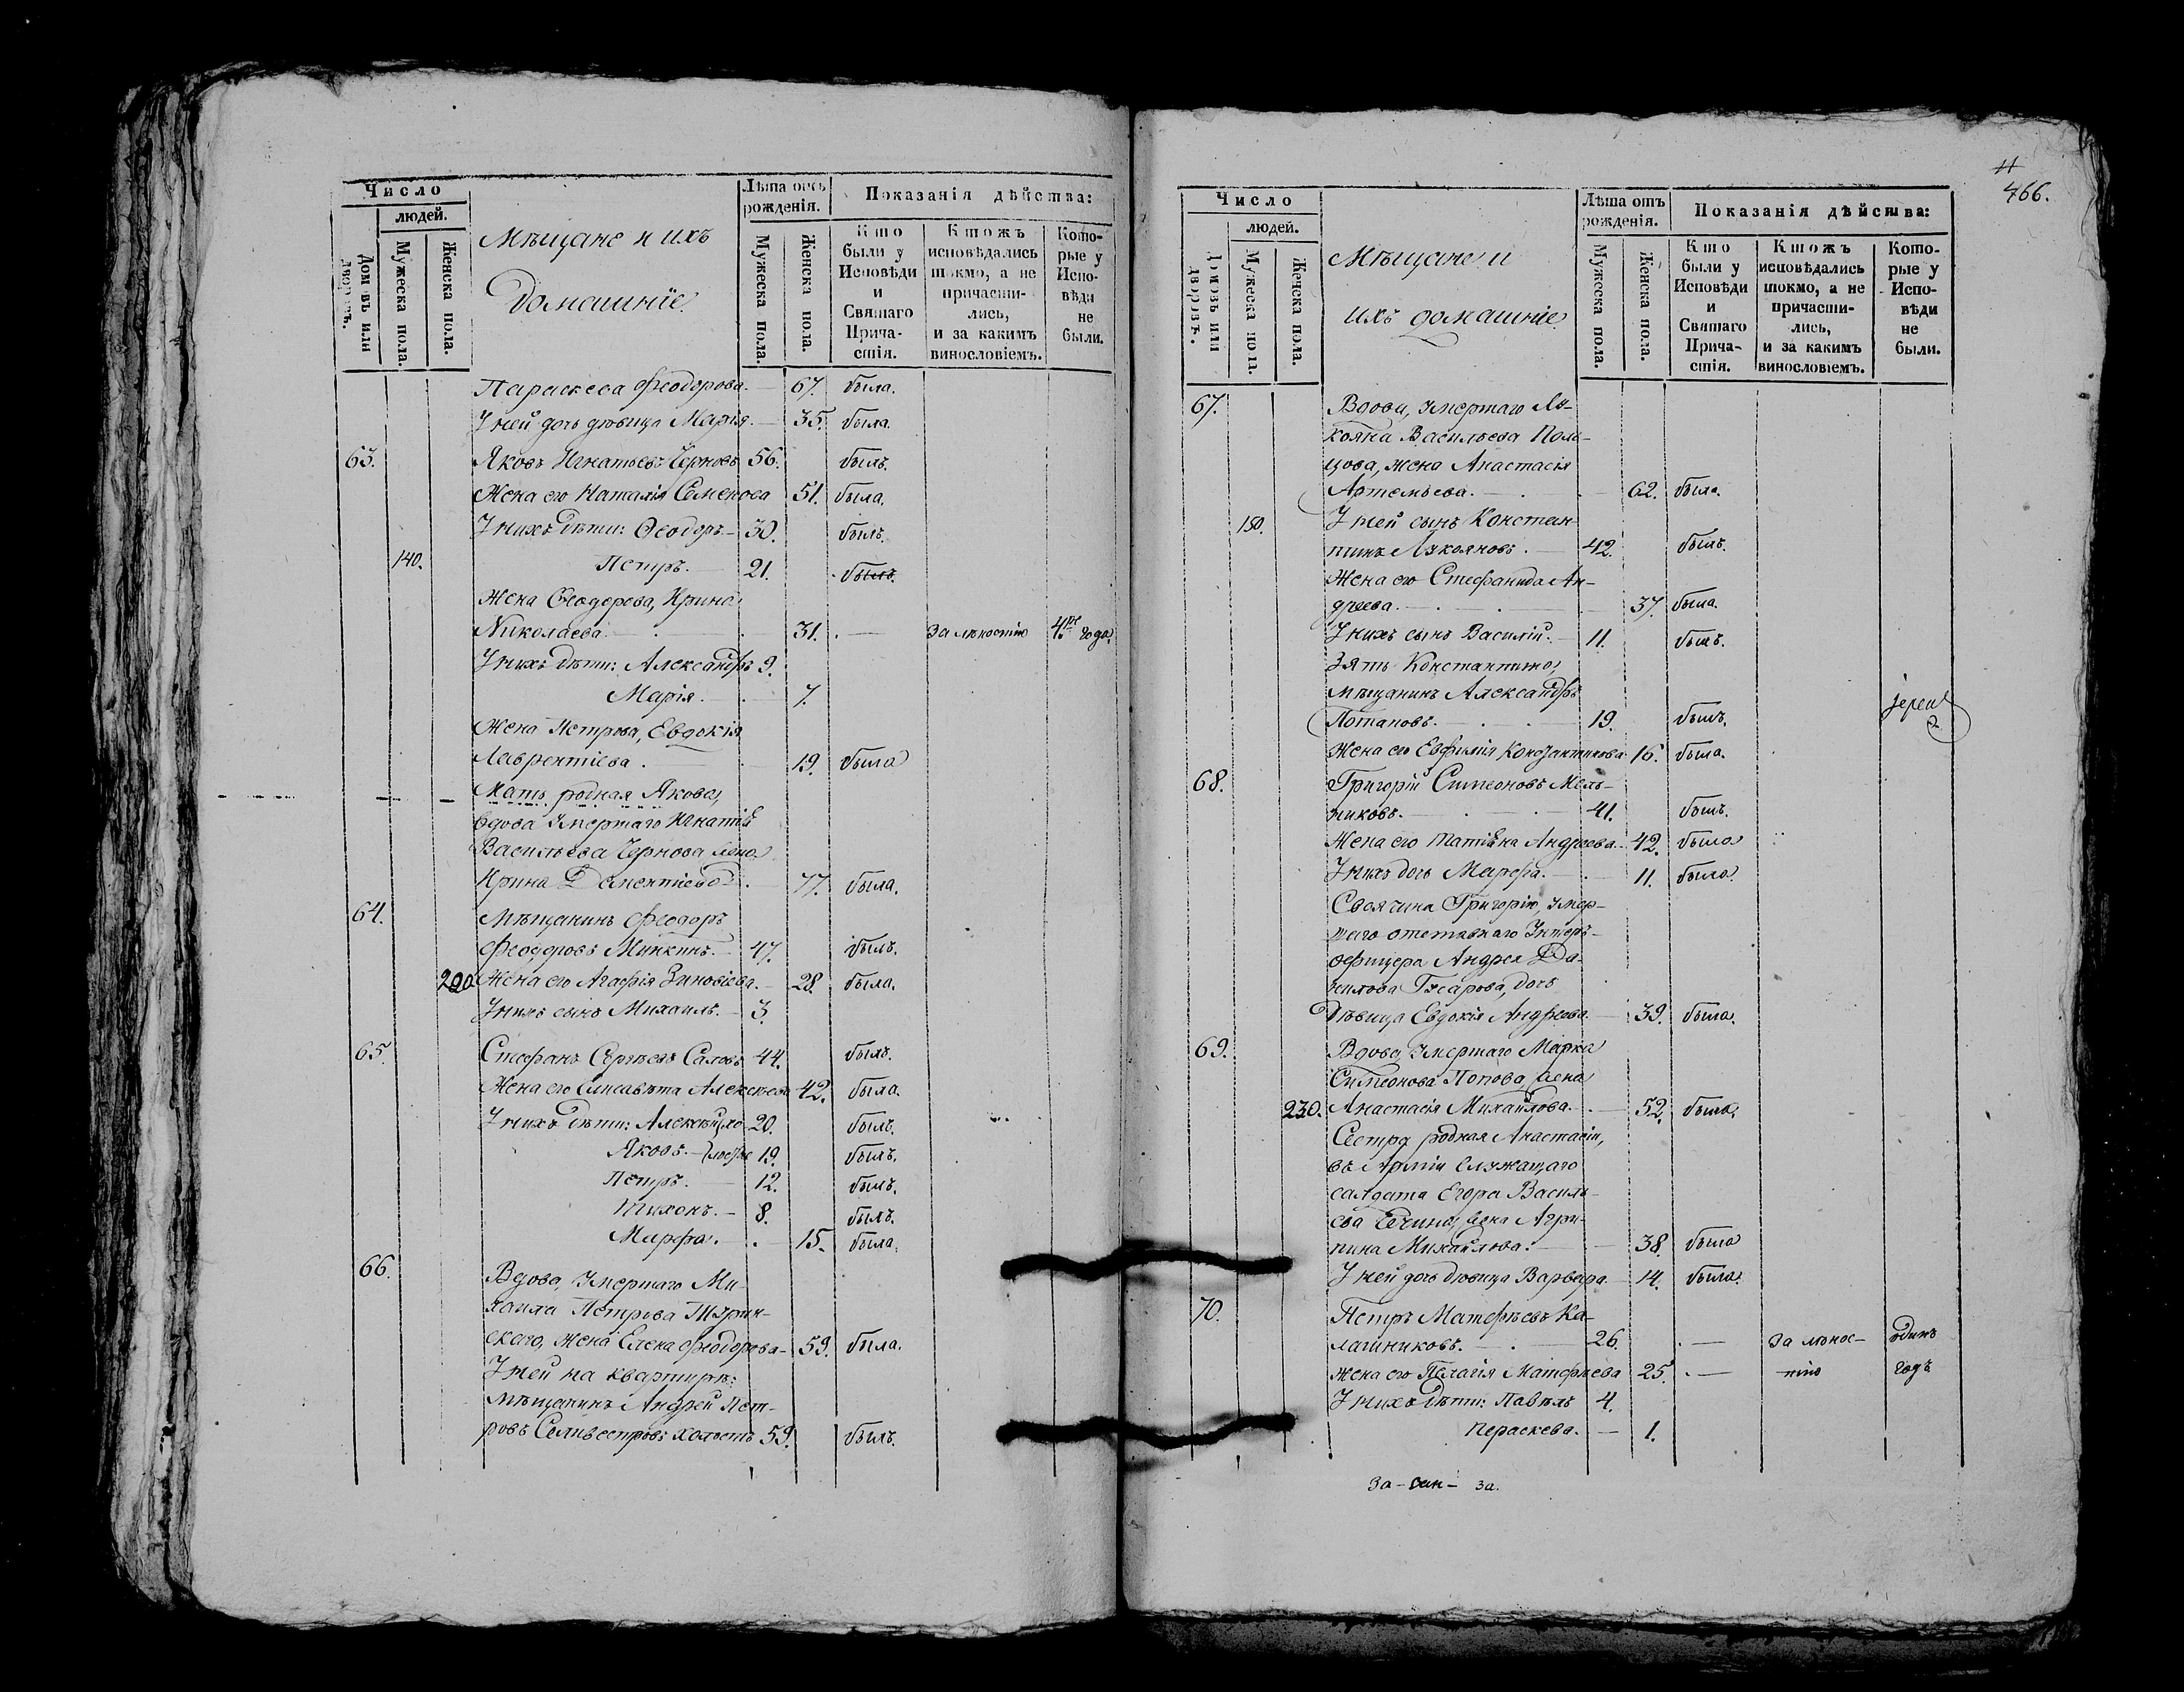 Число
людей.
Домовъ или дворовъ.
Мужеска пола.
Женска пола.
Мѣщане и ихъ
домашніе.
Лѣта отъ
рожденія.
Мужеска пола.
Женска пола.
Показанія дѣйства:
Кто
были у
Исповѣди
и
Святаго
Прича-
стія.
Ктожъ
исповѣдались
токмо, а не
причасти-
лись,
и за какимъ
винословіемъ.
Кото-
рые у
Испо-
вѣди
не
были.
Параскева Феодорова. — 67. была.
У ней дочь дѣвица Марія. — 35. была.
63. Яковъ Игнатьевъ Черновъ 56. былъ.
Жена его Наталія Семенова 51. была.
У нихъ дѣти: Ѳеодоръ — 30. былъ.
140. Петръ. — 21. былъ.
Жена Ѳеодорова, Ирина
Николаева. — 31. — За лѣностію 4ре года.
У нихъ дѣти: Александръ 9.
Марія. — 7.
Жена Петрова, Евдокія
Лаврентіева. 19. была
Мать родная Якова,
вдова умершаго Игнатія
Васильева Чернова жена
Ирина Дементіева. 77. была.
64. Мѣщанинъ Феодоръ
Феодоровъ Минкинъ. — 47. былъ.
200. Жена его Агафія Зиновіева. — 28. была.
У нихъ сынъ Михаилъ. — 3.
65. Стефанъ Сергѣевъ Саловъ 44. былъ.
Жена его Елисавета Алексѣева 42. была.
У нихъ дѣти: Алексѣй 20. былъ.
Яковъ. — 19. былъ.
Петръ. — 12. былъ.
Тихонъ. — 8. былъ.
Марфа. — 15. была.
66. Вдова, умершаго Ми-
хаила Петрова Тюрин-
скаго, жена Елена Феодорова — 59. была.
У ней на квартирѣ:
Мѣщанинъ Андрей Пет-
ровъ Селивестровъ холостъ 59. былъ.
11
466.
Число
людей.
Домовъ или дворовъ.
Мужеска пола.
Женска пола.
Мѣщане и
ихъ домашніе.
Лѣта отъ
рожденія.
Мужеска пола.
Женска пола.
Показанія дѣйства:
Кто
были у
Исповѣди
и
Святаго
Прича-
стія.
Ктожъ
исповѣдались
токмо, а не
причасти-
лись,
и за какимъ
винословіемъ.
Кото-
рые у
Испо-
вѣди
не
были.
67. Вдова, умершаго Лу-
кояна Васильева Поль-
цова, жена Анастасія
Артемьева. — 62. была.
150. У ней сынъ Констан-
тинъ Лукояновъ. — 42. былъ.
Жена его Стефанида Ан-
дреева. — 37. была.
У нихъ сынъ Василій. — 11. былъ.
Зять Константина,
мѣщанинъ Александръ
Потаповъ. — 19. былъ.
іерей
Жена его Евфимія Константинова 16. была.
68. Григорій Симеоновъ Мель-
никовъ. — 41. былъ.
Жена его Татіана Андреева. — 42. была
У нихъ дочь Марфа. — 11. была.
Своячина Григорію, умер-
шаго отставнаго Унтеръ-
офицера Андрея Да-
нилова Гусарова, дочь
дѣвица Евдокія Андреева — 39. была.
69. Вдова, умершаго Марка
Симеонова Попова, жена
230. Анастасія Михайлова. — 52. была.
Сестра родная Анастасіи,
въ Арміи служащаго
солдата Егора Василь-
ева жена Агри-
пина Михайлова. — 38. была
У ней дочь дѣвица Варвара — 14. была.
70. Петръ Матфѣевъ Ка-
лашниковъ. — 26. — За лѣнос- одинъ
Жена его Пелагія Матфѣева 25. — тію годъ
У нихъ дѣти: Павелъ 4.
Параскева. — 1.
За-син- за.